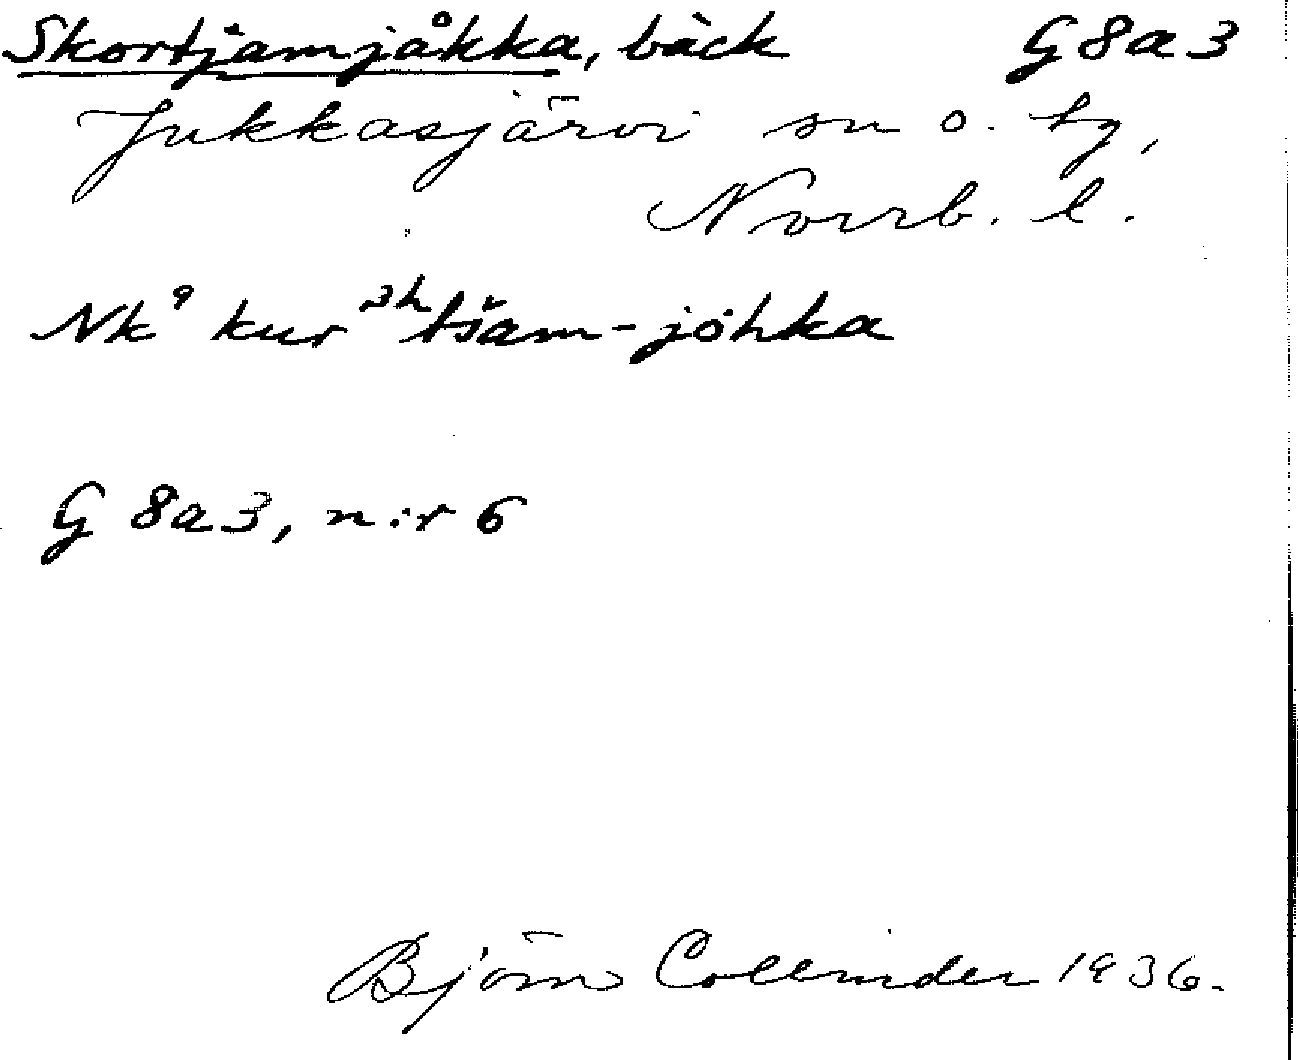 Skortjamjåkka, bäck G8a3
Jukkasjärvi sn o. tg,
Norrb. l.
Nk⁹ kur ᵌʰtšam-jòhka
G 8a3, n:r 6
Björn Collinder 1936.